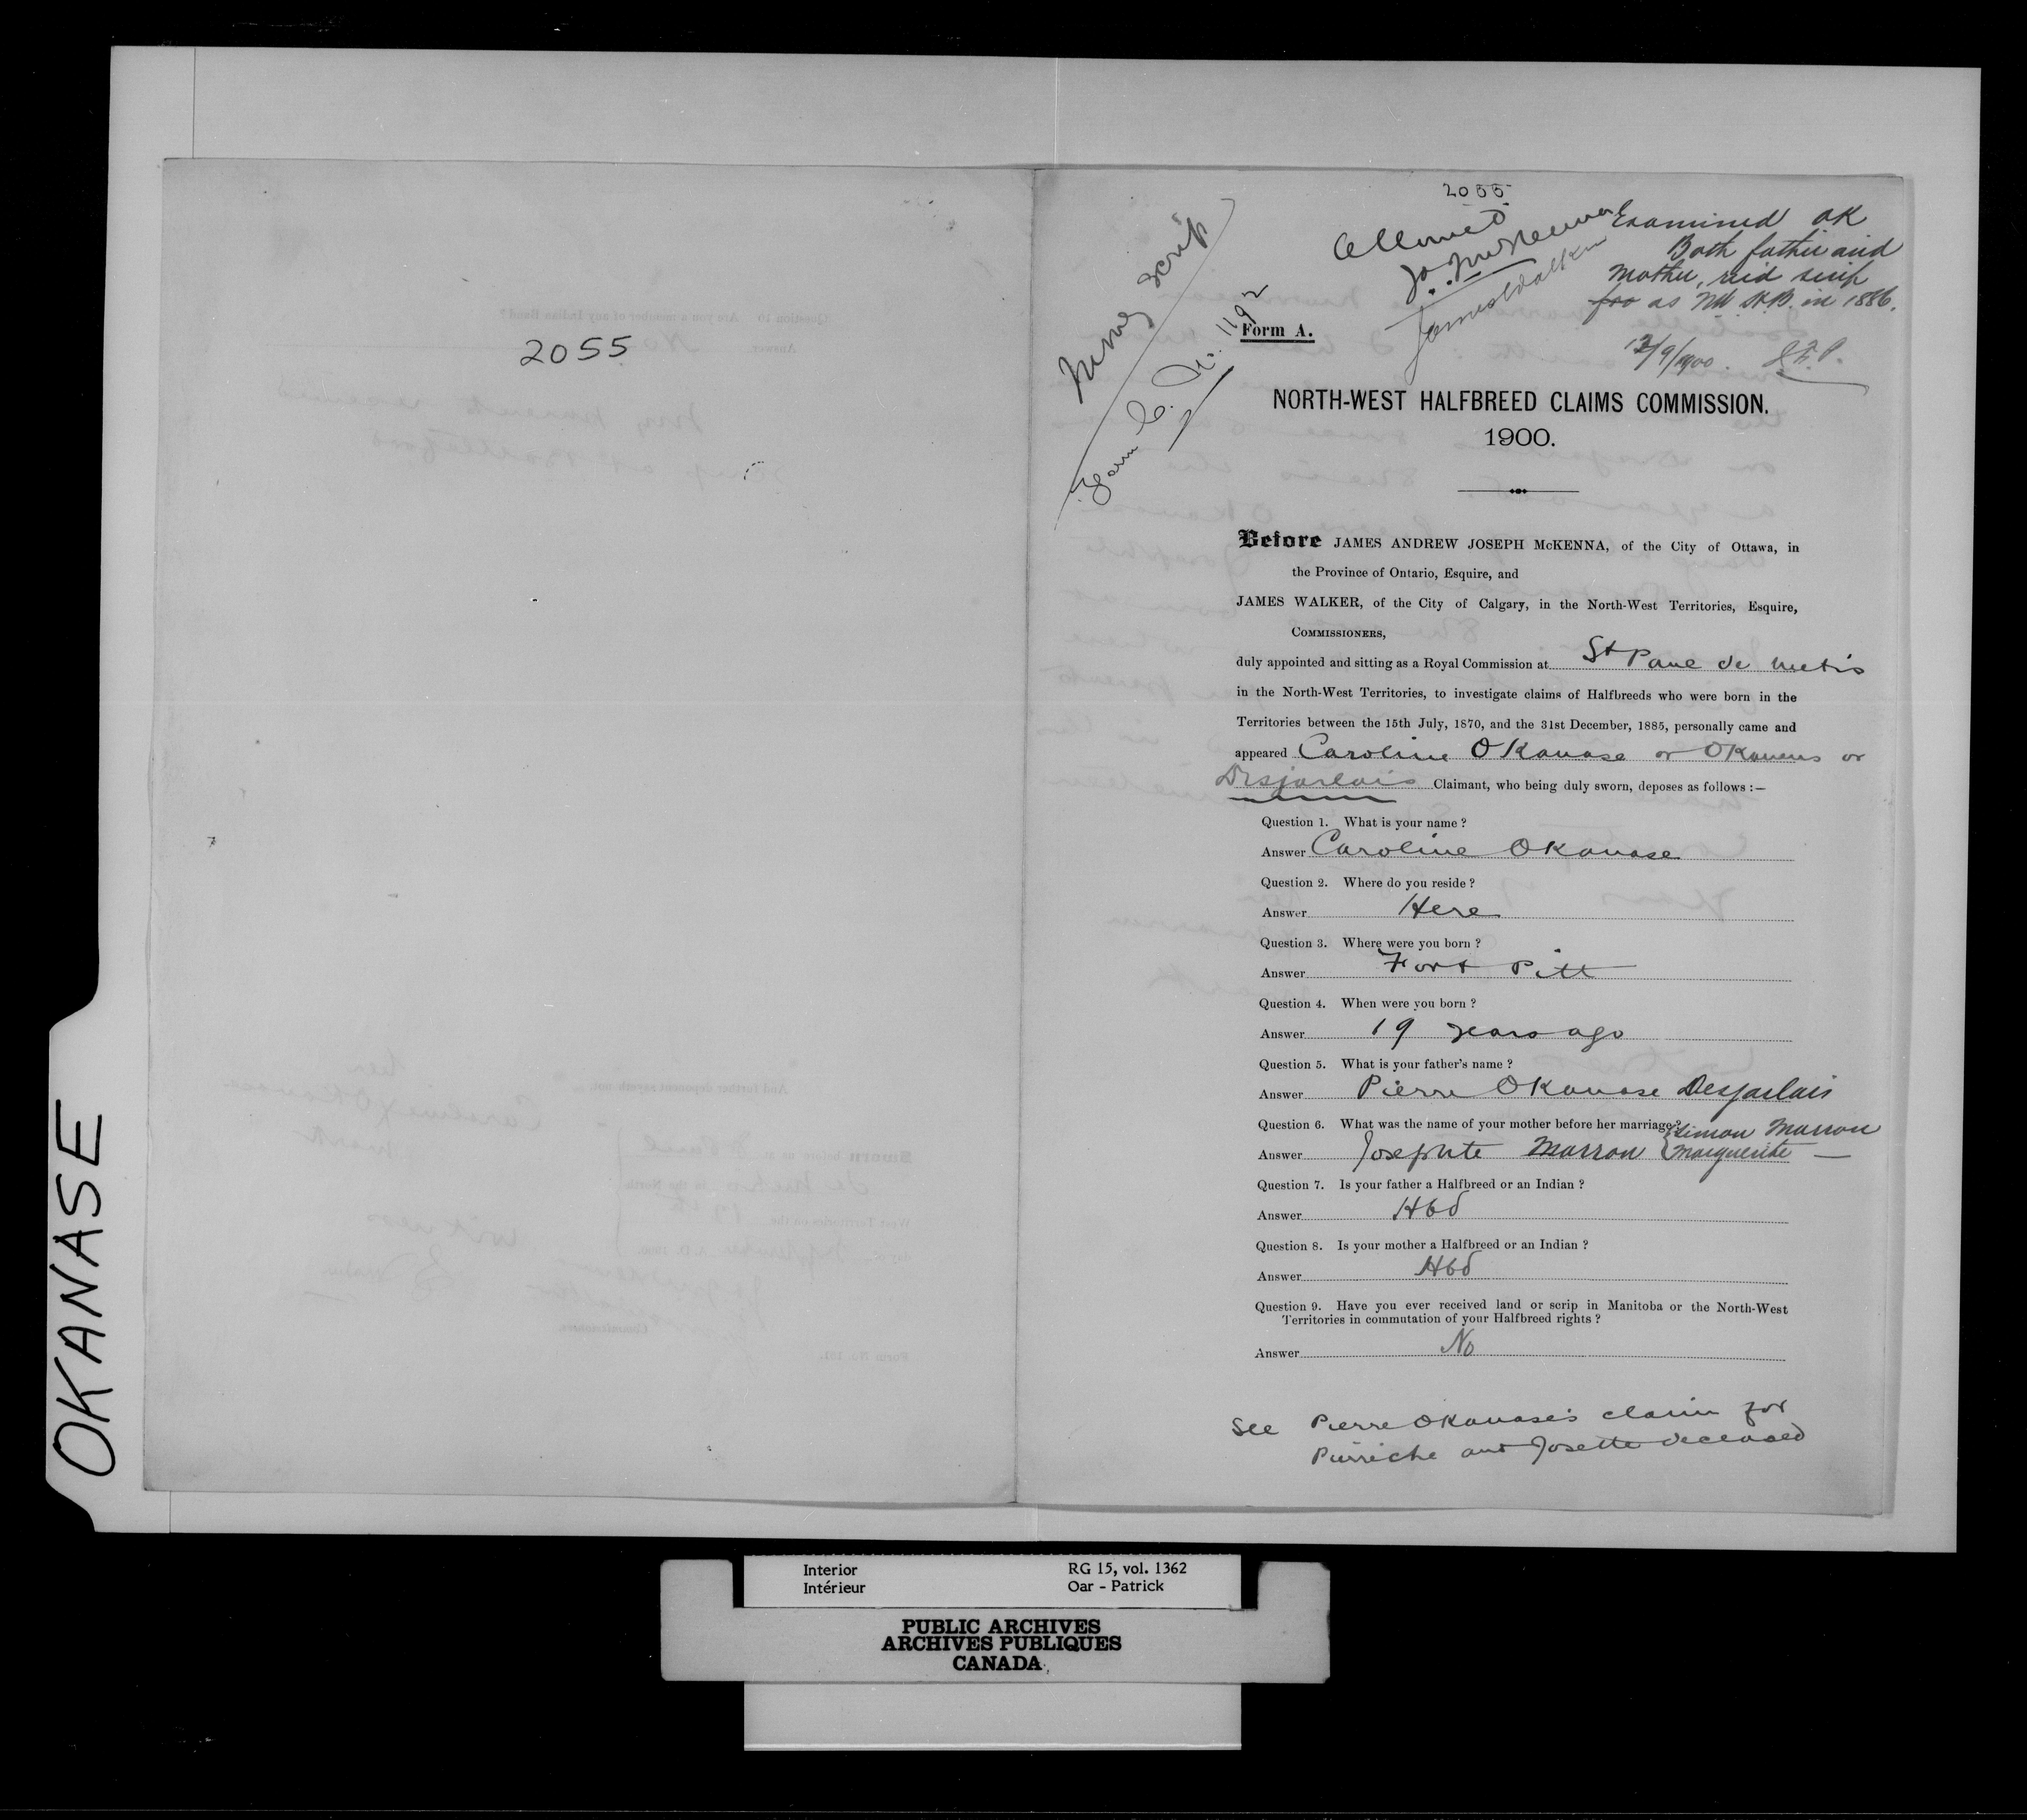 OKANASE
2055
2055
Allowed
Examined OK
Both father and
mother, recd scrip
for as NW H.B. in 1886.
12/9/1900.
money scrip
Form C. No. 1192
James Walker
Form A.
NORTH-WEST HALFBREED CLAIMS COMMISSION.
1900.
Before JAMES ANDREW JOSEPH McKENNA, of the City of Ottawa, in
the Province of Ontario, Esquire, and
JAMES WALKER, of the City of Calgary, in the North-West Territories, Esquire,
COMMISSIONERS,
duly appointed and sitting as a Royal Commission at St Paul de Metis
in the North-West Territories, to investigate claims of Halfbreeds who were born in the
Territories between the 15th July, 1870, and the 31st December, 1885, personally came and
appeared Caroline OKanase or OKanens or
Desjarlais Claimant, who being duly sworn, deposes as follows :—
Question 1. What is your name ?
Answer Caroline OKanase
Question 2. Where do you reside ?
Answer Here
Question 3. Where were you born ?
Answer Fort Pitt
Question 4. When were you born ?
Answer 19 years ago
Question 5. What is your father's name ?
Answer Pierre OKanase Desjarlais
Question 6. What was the name of your mother before her marriage ?
Answer Josephte Marron { Simon Marron
Marguerite —
Question 7. Is your father a Halfbreed or an Indian ?
Answer Hbd
Question 8. Is your mother a Halfbreed or an Indian ?
Answer Hbd
Question 9. Have you ever received land or scrip in Manitoba or the North-West
Territories in commutation of your Halfbreed rights ?
Answer No
See Pierre OKanase's claim for
Pierriche and Josette deceased
Interior RG 15, vol. 1362
Intérieur Oar - Patrick
PUBLIC ARCHIVES
ARCHIVES PUBLIQUES
CANADA